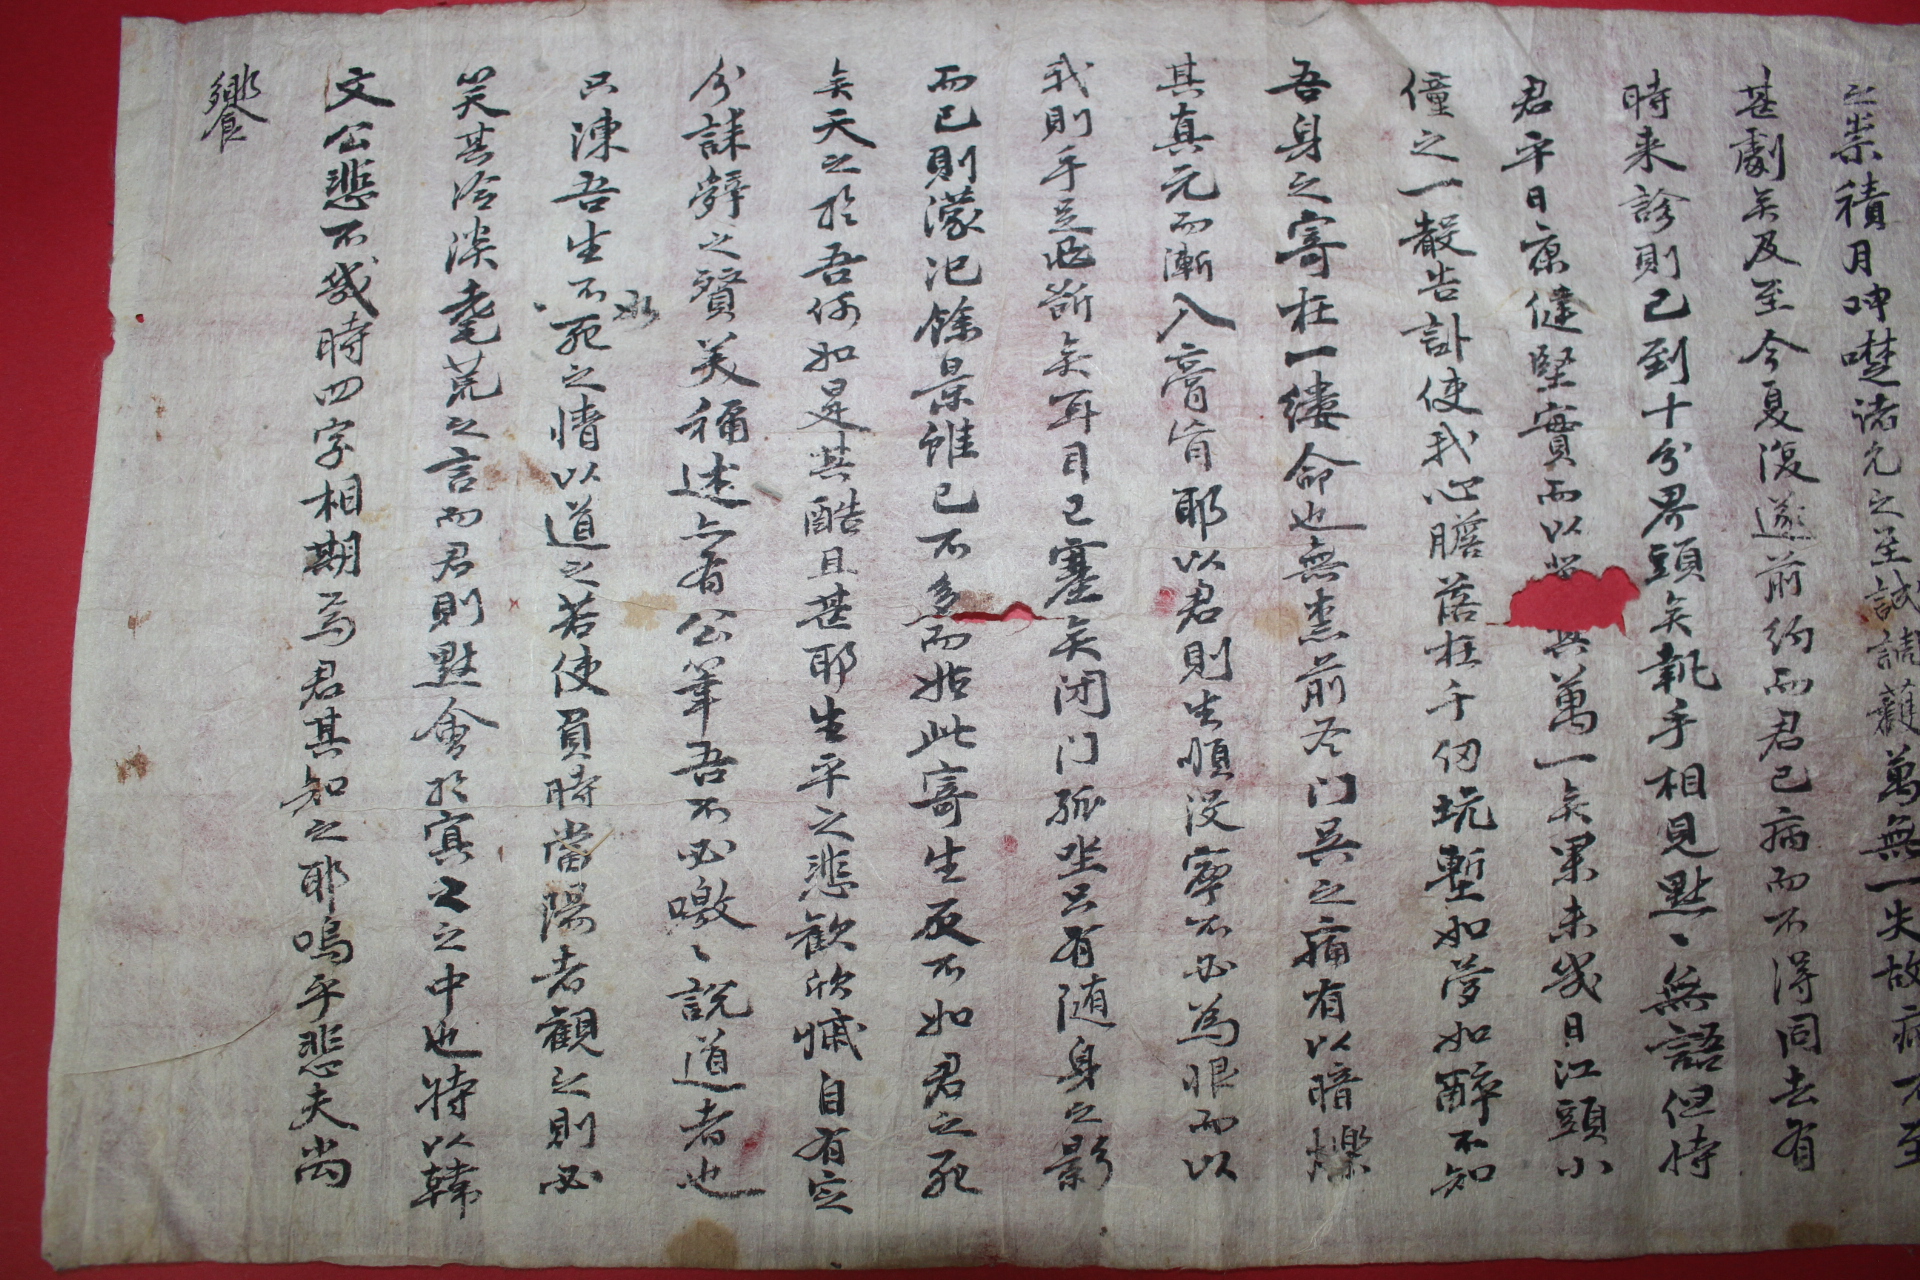 之祟積月呻囈諸允之至誠調護萬無一失故病不至
甚劇矣及至今夏復遂前約而君已病而不得同去有
時來診則已到十分界頭矣執手相見黙〻無語但恃
君平日康健堅實而以 其萬一矣果未幾日江頭小
僮之一聲告訃使我心膽落在千仞坑塹如夢如醉不知
吾身之寄在一縷命也無柰前冬门吳之痛有以暗爍
其真元而漸入膏肓耶以君則生順沒寧不必為恨而以
我則手足斷矣耳目已塞矣闭门孤坐只有随身之影
而已則濛汜餘景雖已不多而如此寄生反不如君之死
矣天之於吾何如是其酷且甚耶生平之悲歡欣慽自有定
分誄辭之賢美稱述亦有公筆吾不必噭〻說道者也
只陳吾生不死之情以道之若使員時當陽者觀之則必
笑其冷淡耄荒之言而君則黙會於冥〻之中也特以韓
文公悲不幾時四字相期為君其知之耶嗚乎悲夫尚
饗